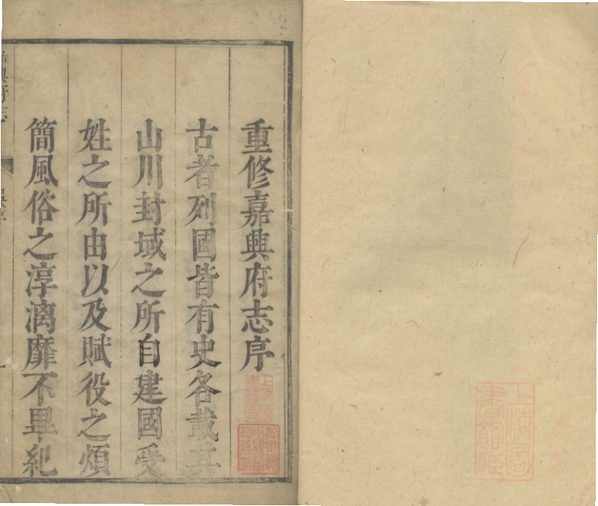 重修嘉興府志序
古者列國皆有史各載其
山川封域之所自建國受
姓之所由以及賦役之煩
簡風俗之淳漓靡不畢紀